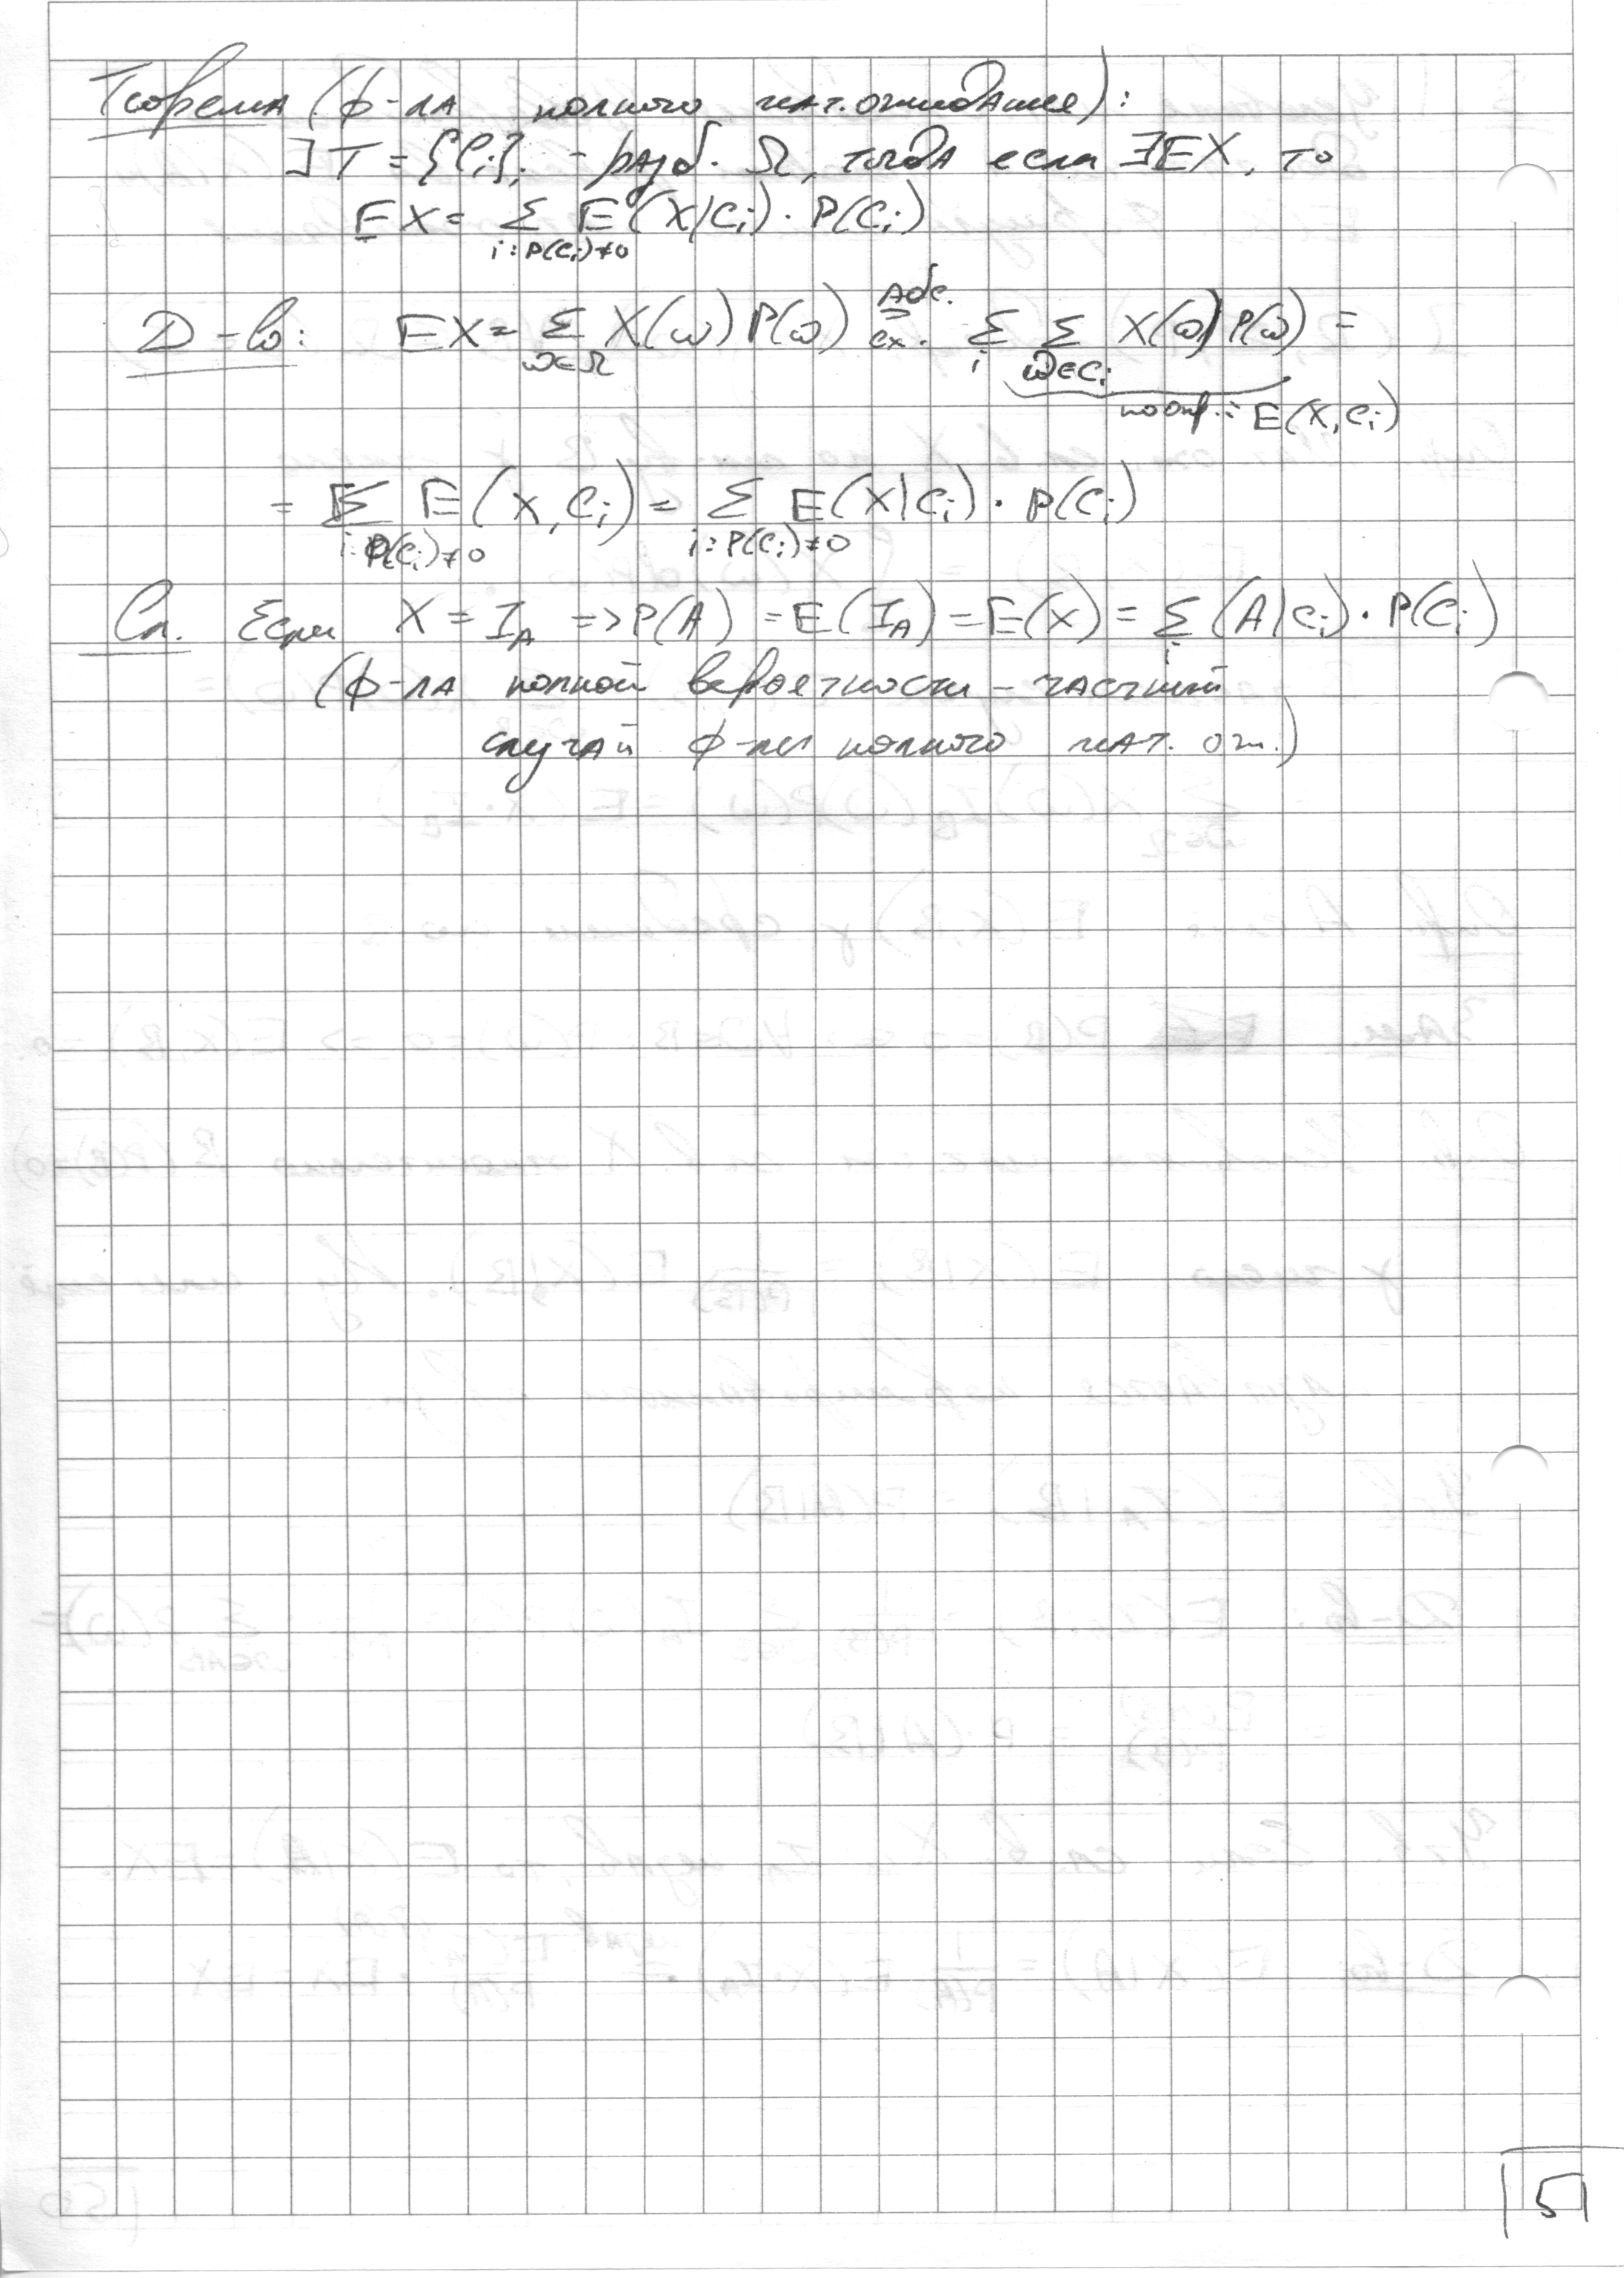 Теорема (ф-ла полного мат. ожидания):
∃ T = {Cᵢ}ᵢ - разб. Ω, тогда если ∃EX, то
EX = Σ_{i: P(Cᵢ)≠0} E(X|Cᵢ) · P(Cᵢ)
Д-во: EX = Σ_{ω∈Ω} X(ω) P(ω) =^{абс.}_{сх.} Σ_i Σ_{ω∈Cᵢ} X(ω) P(ω) =
по опр. = E(X, Cᵢ)
= Σ_{i: P(Cᵢ)≠0} E(X, Cᵢ) = Σ_{i: P(Cᵢ)≠0} E(X|Cᵢ) · P(Cᵢ)
Сл. Если X = I_A => P(A) = E(I_A) = E(X) = Σ_i (A|Cᵢ) · P(Cᵢ)
(ф-ла полной вероятности - частный
случай ф-лы полного мат. ож.)
51